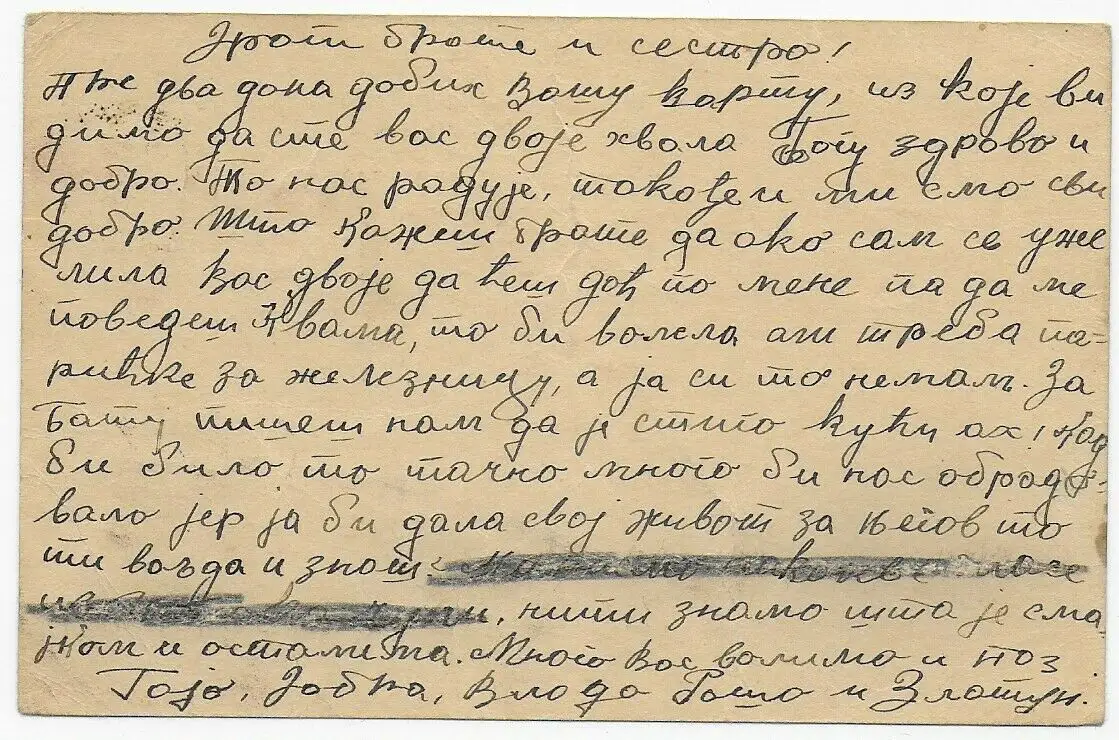 Драги брате и сестро!
Пре два дана добих Вашу карту, из које ви
димо да сте вас двоје хвала Богу здраво и
добро. То нас радује, такође и ми смо сви
добро. Што кажеш брате да ако сам се уже
лила вас двоје да ћеш доћ по мене па да ме
поведеш к вама, то би волела али треба па-
рићке за железницу, а ја си то немам. За
Бату пишеш нам да је стиго кући ах! Кад
би било то тачно много би нас обрадо-
вало јер ја би дала свој живот за његов то
ти ваљда и знаш
, нити знамо шта је сма
јком и осталима. Много вас волимо и поз
Гојо, Владо и